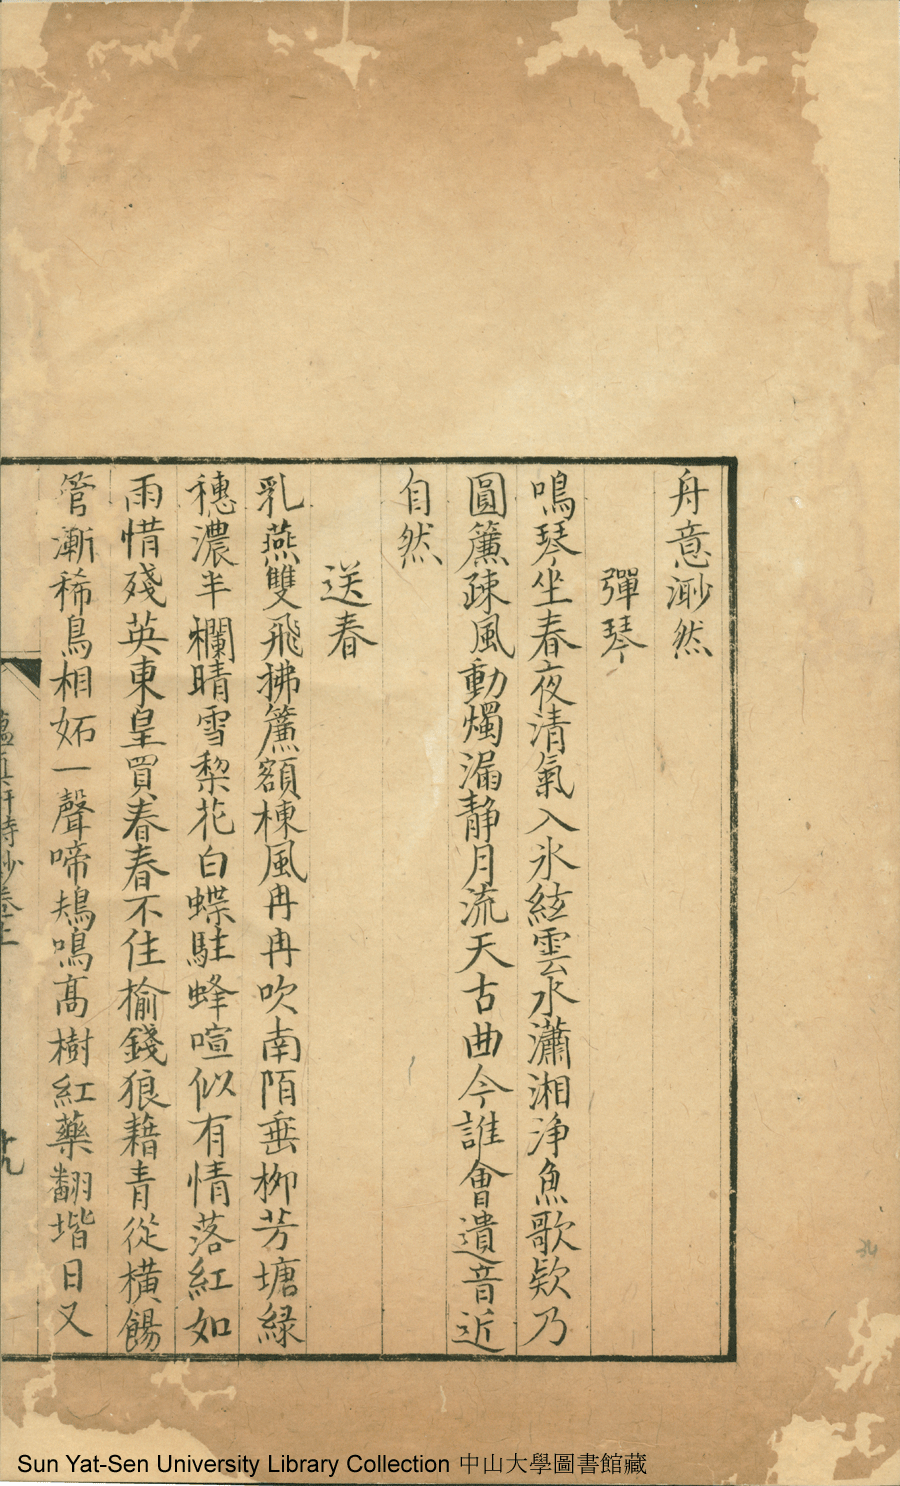 舟意渺然
彈琴
鳴琴坐春夜清氣入氷絃雲水瀟湘淨魚歌欵乃
圓簾疎風動燭漏靜月流天古曲今誰會遺音近
自然
送春
乳燕雙飛拂簾額楝風冉冉吹南陌垂柳芳塘緑
穗濃半欄晴雪梨花白蝶駐蜂喧似有情落紅如
雨惜殘英東皇買春春不住榆錢狼藉青從橫餳
管漸稀鳥相妬一聲啼鴂鳴高樹紅藥翻堦日又
詩鈔卷上
十九
34
Sun Yat-Sen University Library Collection 中山大學圖書館藏